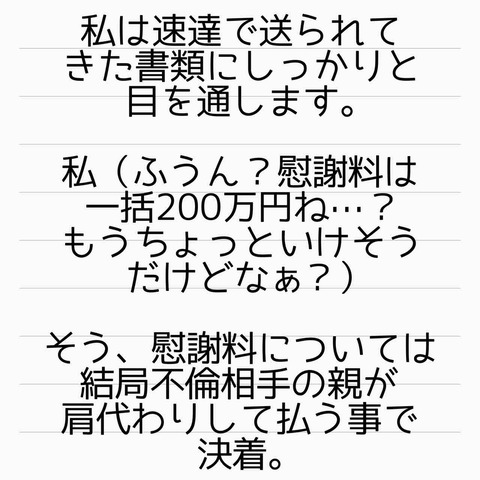 私は速達で送られて
きた書類にしっかりと
目を通します。
私（ふうん？慰謝料は
一括200万円ね…？
もうちょっといけそう
だけどなぁ？）
そう、慰謝料については
結局不倫相手の親が
肩代わりして払う事で
決着。